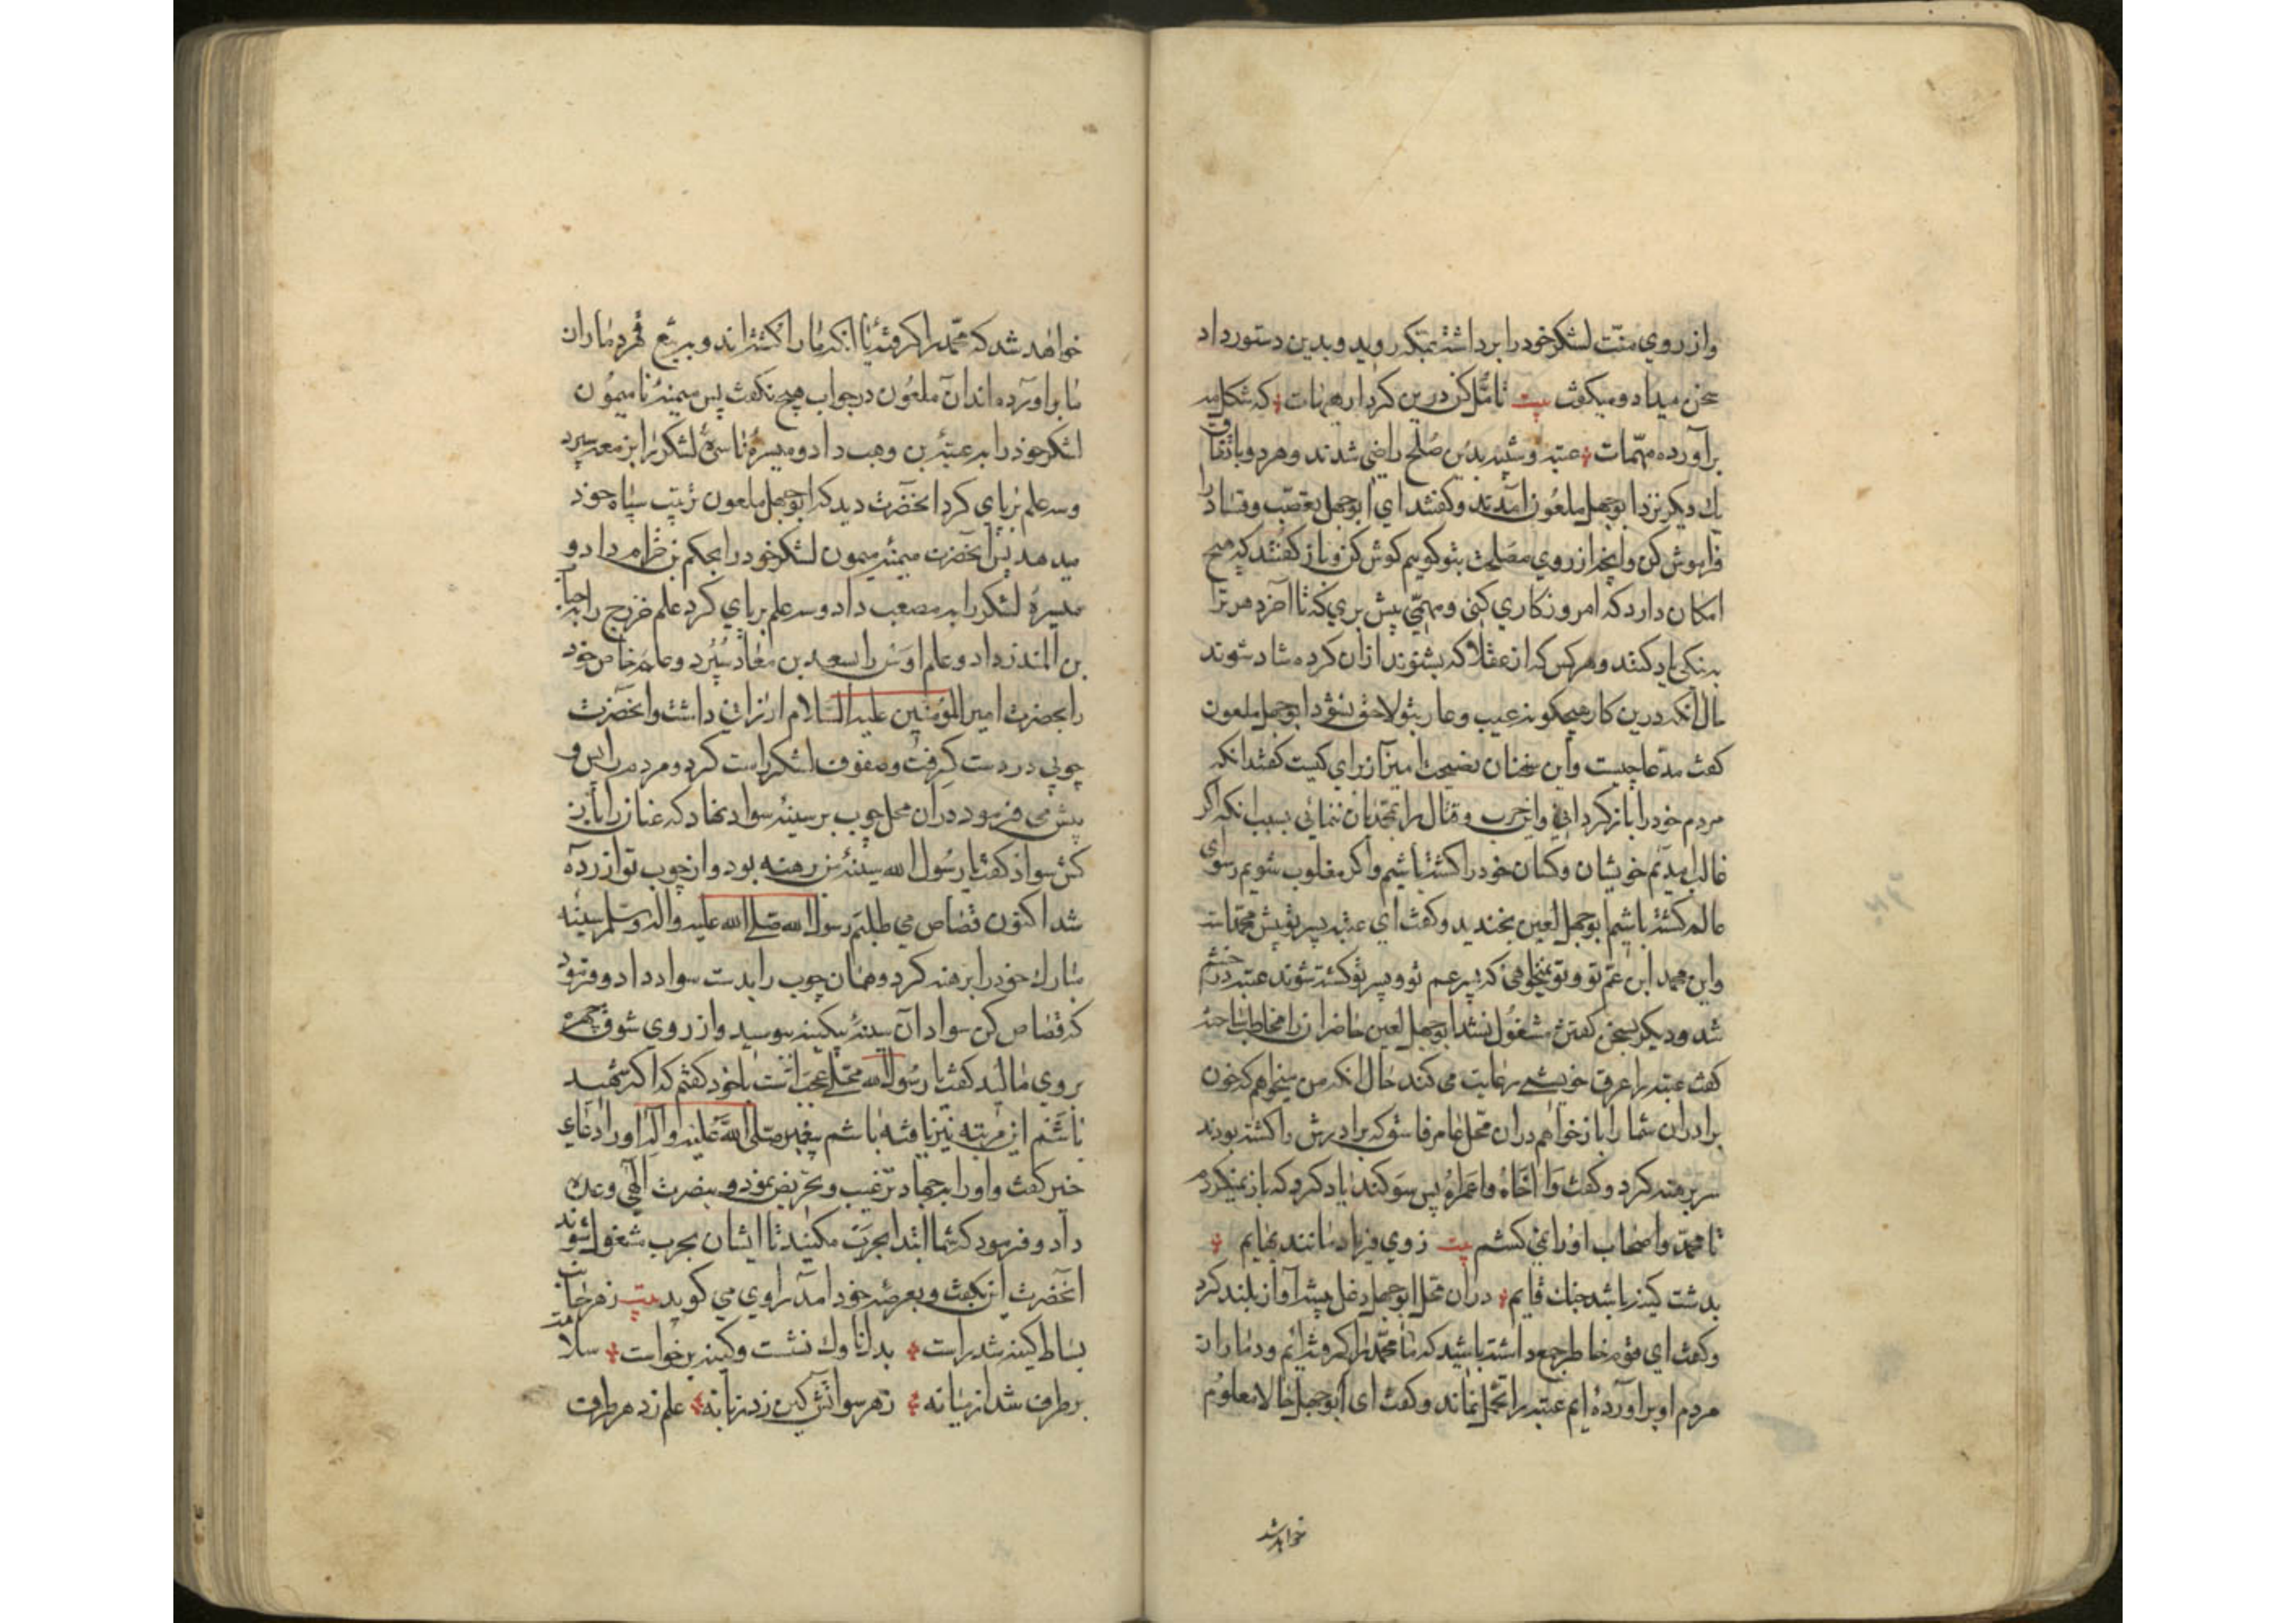 واز روی منّت لشکر خود را برداشته بمکه روید وبدین دستور داد
سخن میداد ومیکفت بیت تامّل کن درین کردار هیهات که شکل بد
برآورده مهمّات عتبه وشیبه بدین صلح راضی شدند وهر دو باتفاق
یک دیکر نزد ابوجهل ملعون آمدند وکفتند ای ابوجهل تعصّب وفساد را
فراموش کن وانچه از روی مصلحت بتو کوییم کوش کن وباز کفتند که هیچ
امکان دارد که امروز کاری کنی ومهمّی پیش بری که تا آخر دهر ترا
به نیکی یاد کنند وهر کس که از عقلا که بشنوند ازان کرده شاد شوند
حال آنکه درین کار هیچکونه عیب وعار بتو لاحق نشود ابوجهل ملعون
کفت مدّعا چیست واین سخنان نصیحت آمیز از برای کیست کفتند انکه
مردم خود را باز کردانی واین حرب وقتال را بمحمّد بان ننمائی بسبب انکه اکر
غالب آمدیم خویشان وکسان خود را کشته باشیم واکر مغلوب شویم رسوای
عالم کشته باشیم ابوجهل لعین بخندید وکفت ای عتبه پسر تو پیش محمّد است
واین محمد ابن عمّ تو وتو نمیخواهی که پسر عم تو وپسر تو کشته شوند عتبه در خشم
شد ودیکر بسخن کفتن مشغول نشد ابوجهل لعین حاضران را مخاطب ساخته
کفت عتبه را عرق خویشی رعایت می کند حال انکه من میخواهم که خون
برادران شما را باز خواهم دران محل عامر فاسق که برادرش را کشته بودند
سر برهنه کرد وکفت وا اخاه واعمراه پس سوکند یاد کرد که باز نمیکردم
تا محمّد واصحاب او را نمی کشم بیت ز روی فریاد مانند بهایم
بدشت کینه باشد جنک قایم دران محل ابوجهل دغل پیشه آواز بلند کرد
وکفت ای قوم خاطر جمع داشته باشید که ما محمّد را کرفته ایم ودمار از
مردم او برآورده ایم عتبه را تحمّل نماند وکفت ای ابوجهل حالا معلوم
خواهد شد
خواهد شد که محمّد را کرفته یا انکه ما را کشته اند وبه تیغ قهر دمار از
ما برآورده اند آن ملعون در جواب هیچ نکفت پس میمنهٔ نامیمون
لشکر خود را به عتبه بن وهب داد ومیسرهٔ لشکر را بزمعه سپرد
وسه علم برپای کرد انحضرت دید که ابوجهل ملعون ترتیب سپاه خود
میدهد پس آنحضرت میمنهٔ میمون لشکر خود را بحکم بن خرام داد و
میسرهٔ لشکر را به مصعب داد وسه علم برپای کرد علم خزرج را به حباب
بن المنذر داد وعلم اوس را بسعد بن معاذ سپرد وعلم خاص خود
را بحضرت امیر المؤمنین علیه السّلام ارزانی داشت وانحضرت
چوبی در دست کرفت وصفوف لشکر راست کرد ومردم را پس و
پیش می فرمود دران محل چوب بر سینهٔ سواد نهاد که عنان را باز
کش سواد کفت یا رسول الله سینهٔ من برهنه بود واز چوب تو آزرده
شد اکنون قصاص می طلبم رسول الله صلی الله علیه واله وسلم سینه
مبارک خود را برهنه کرد وهمان چوب را بدست سواد داد وفرمود
که قصاص کن سواد آن سینهٔ بیکینه ببوسید واز روی شوق چهره
بروی مالید کفت یا رسول الله محلّی عجب است با خود کفتم که اکر شهید
باشم این مرتبه نیز یافته باشم پیغمبر صلی الله علیه واله او را دعای
خیر کفت واو را بر جهاد ترغیب وتحریض نمود و بنصرت الهی وعده
داد وفرمود که شما ابتدا بحرب مکنید تا ایشان بحرب مشغول شوند
انحضرت این بکفت وبعرصهٔ خود آمد راوی می کوید بیت ز هر جانب
بساط کینه شد راست بدل ناوک نشست وکینه برخواست سلامت
بر طرف شد از میانه ز هر سو آتش کین زد زبانه علم زد هر طرف